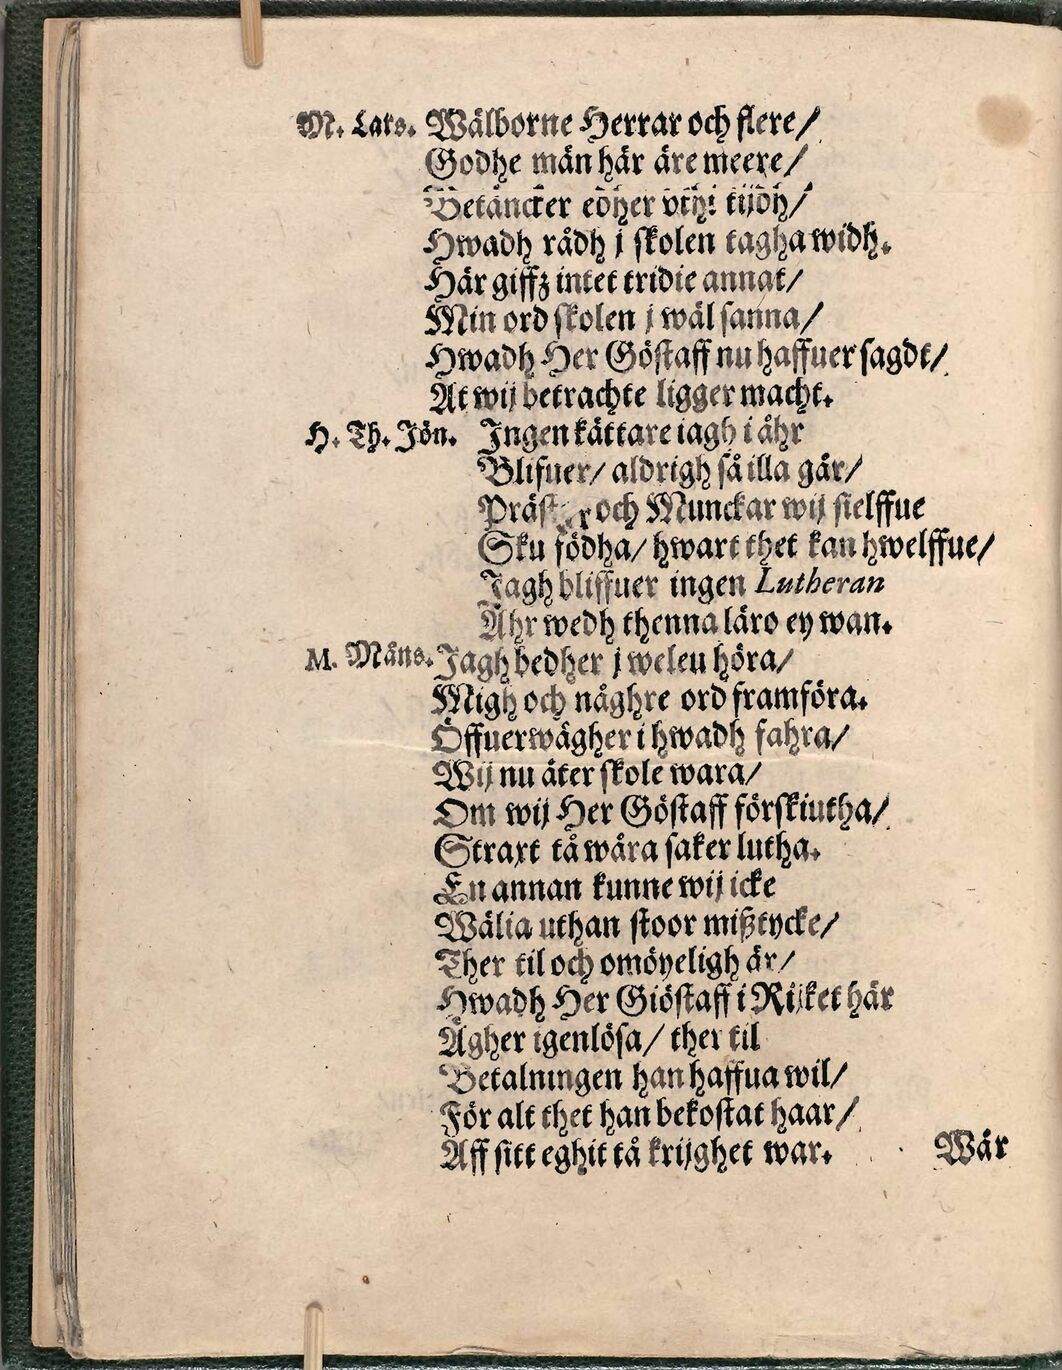 M. Lars. Wälborne Herrar och flere/
Godhe män här äre meere/
Betäncker edher vthi tijdh/
Hwadh rådh j skolen tagha widh.
Här giffz intet tridie annat/
Min ord skolen j wäl sanna/
Hwadh Her Göstaff nu haffuer sagdt/
At wij betrachte ligger macht.
H. Th. Jön. Ingen kättare iagh i åhr
Blifuer/ aldrigh så illa går/
och Munckar wij sielffue
Sku födha/ hwart thet kan hwelffue/
Jagh bliffuer ingen Lutheran
Åhr wedh thenna läro ey wan.
M. Måns. Jagh bedher j welen höra/
Migh och någhre ord framföra.
Öffuerwägher i hwadh fahra/
Wij nu åter skole wara/
Om wij Her Göstaff förskiutha/
Straxt tå wåra saker lutha.
En annan kunne wij icke
Wälia uthan stoor mißtycke/
Ther til och omöyeligh är/
Hwadh Her Giöstaff i Rijket här
Ägher igenlösa/ ther til
Betalningen han haffua wil/
För alt thet han bekostat haar/
Aff sitt eghit tå krijghet war.
Wår